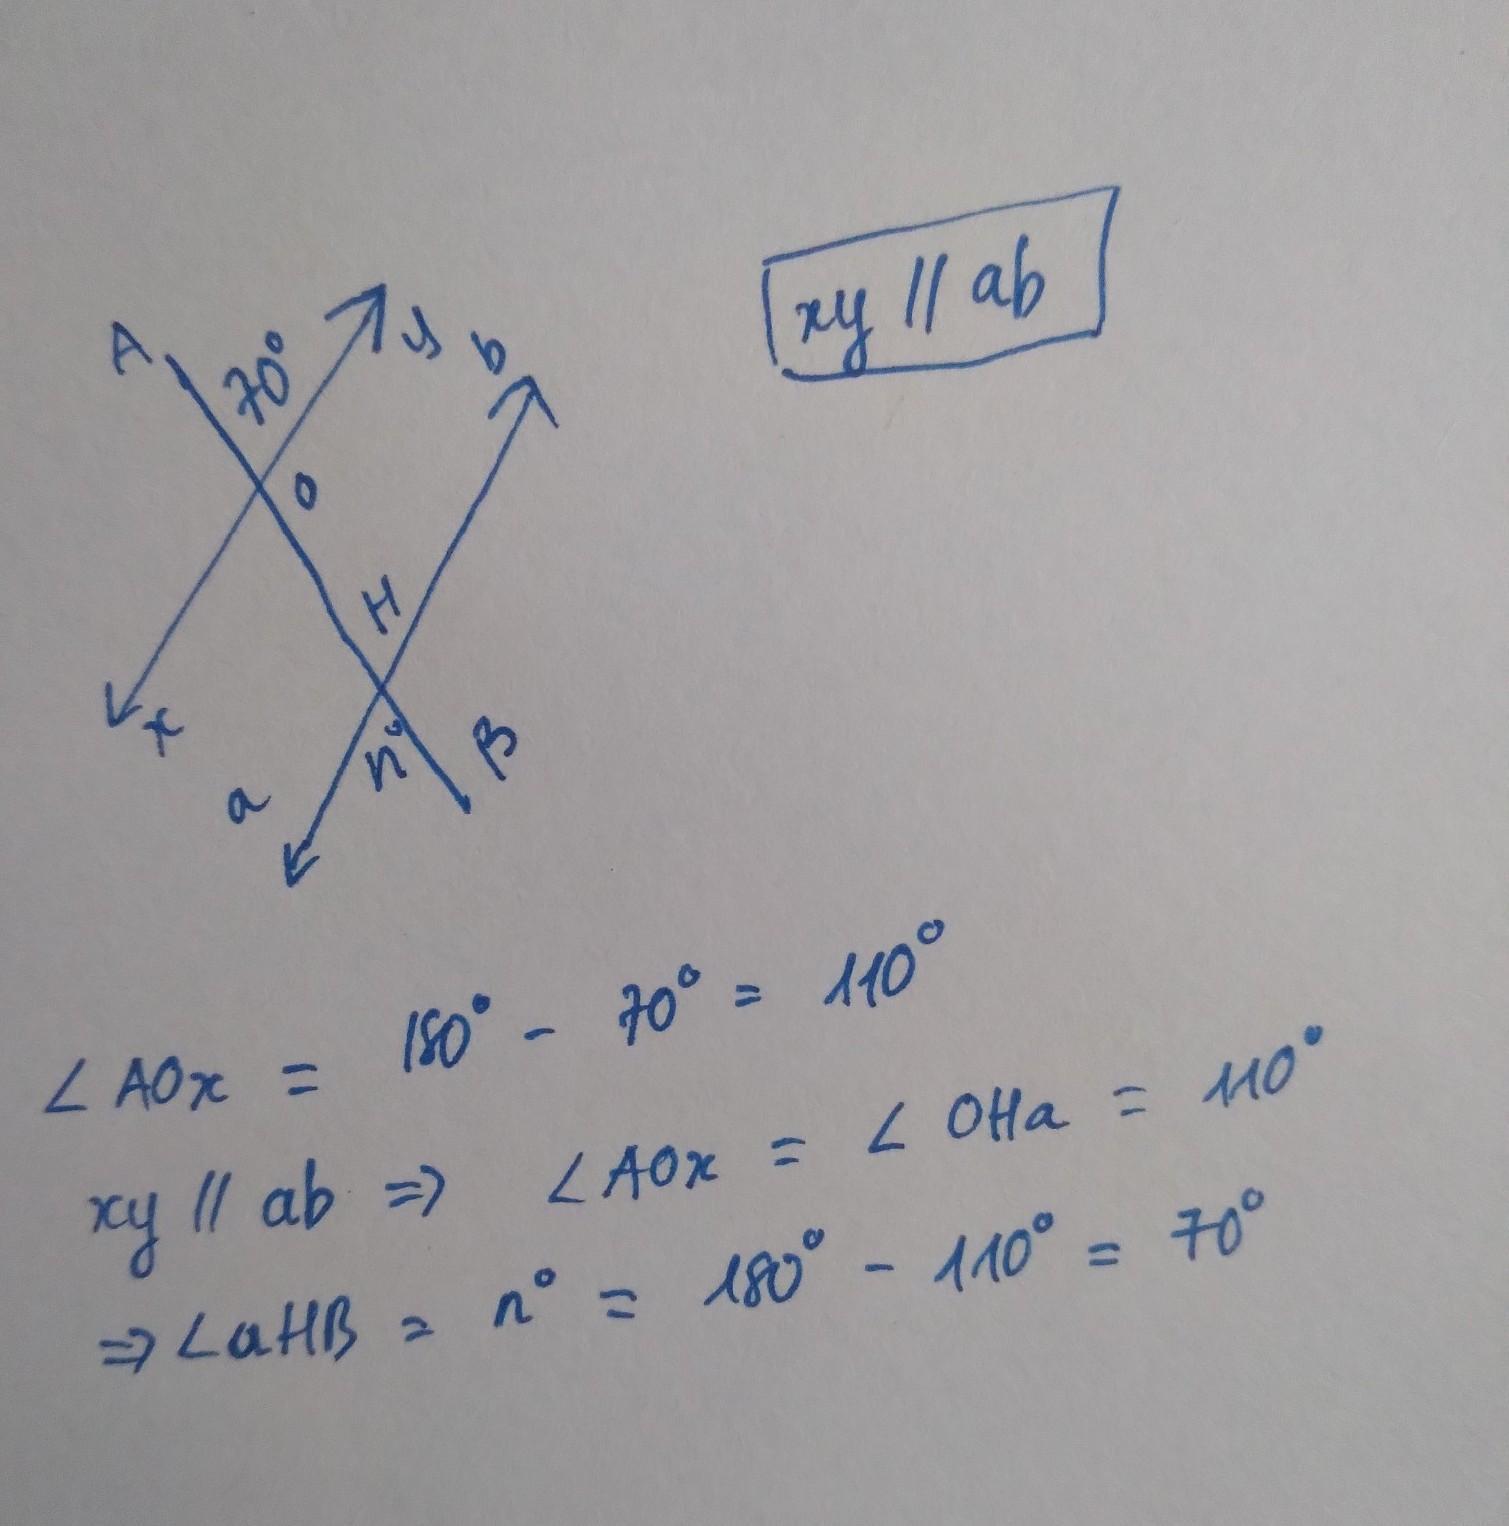 xy // ab
A 70° y b
O
H
x
a n° B
∠AOx = 180° - 70° = 110°
xy // ab => ∠AOx = ∠OHa = 110°
=> ∠aHB = n° = 180° - 110° = 70°